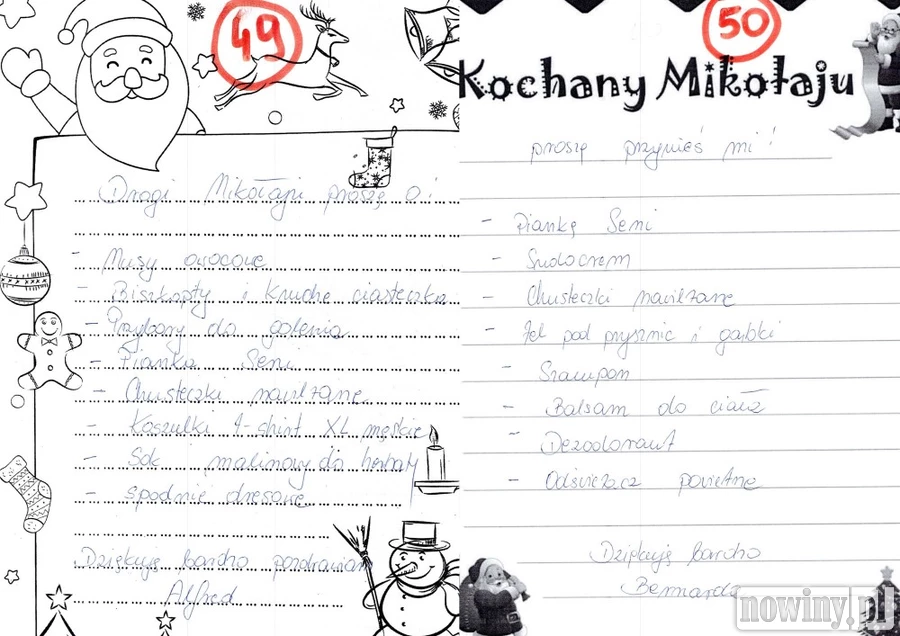 49
Drogi Mikołaju proszę o:
- Musy owocowe
- Biszkopty i kruche ciasteczka
- Przybory do golenia
- Pianka Seni
- Chusteczki nawilżane
- Koszulki t-shirt XL męskie
- Sok malinowy do herbaty
- spodnie dresowe
Dziękuję bardzo pozdrawiam
Alfred
50
Kochany Mikołaju
proszę przynieś mi!
- Piankę Seni
- Sudocrem
- Chusteczki nawilżane
- żel pod prysznic i gąbki
- Szampon
- Balsam do ciała
- Dezodorant
- Odświeżacz powietrza
Dziękuję bardzo
Bernarda
nowiny.pl